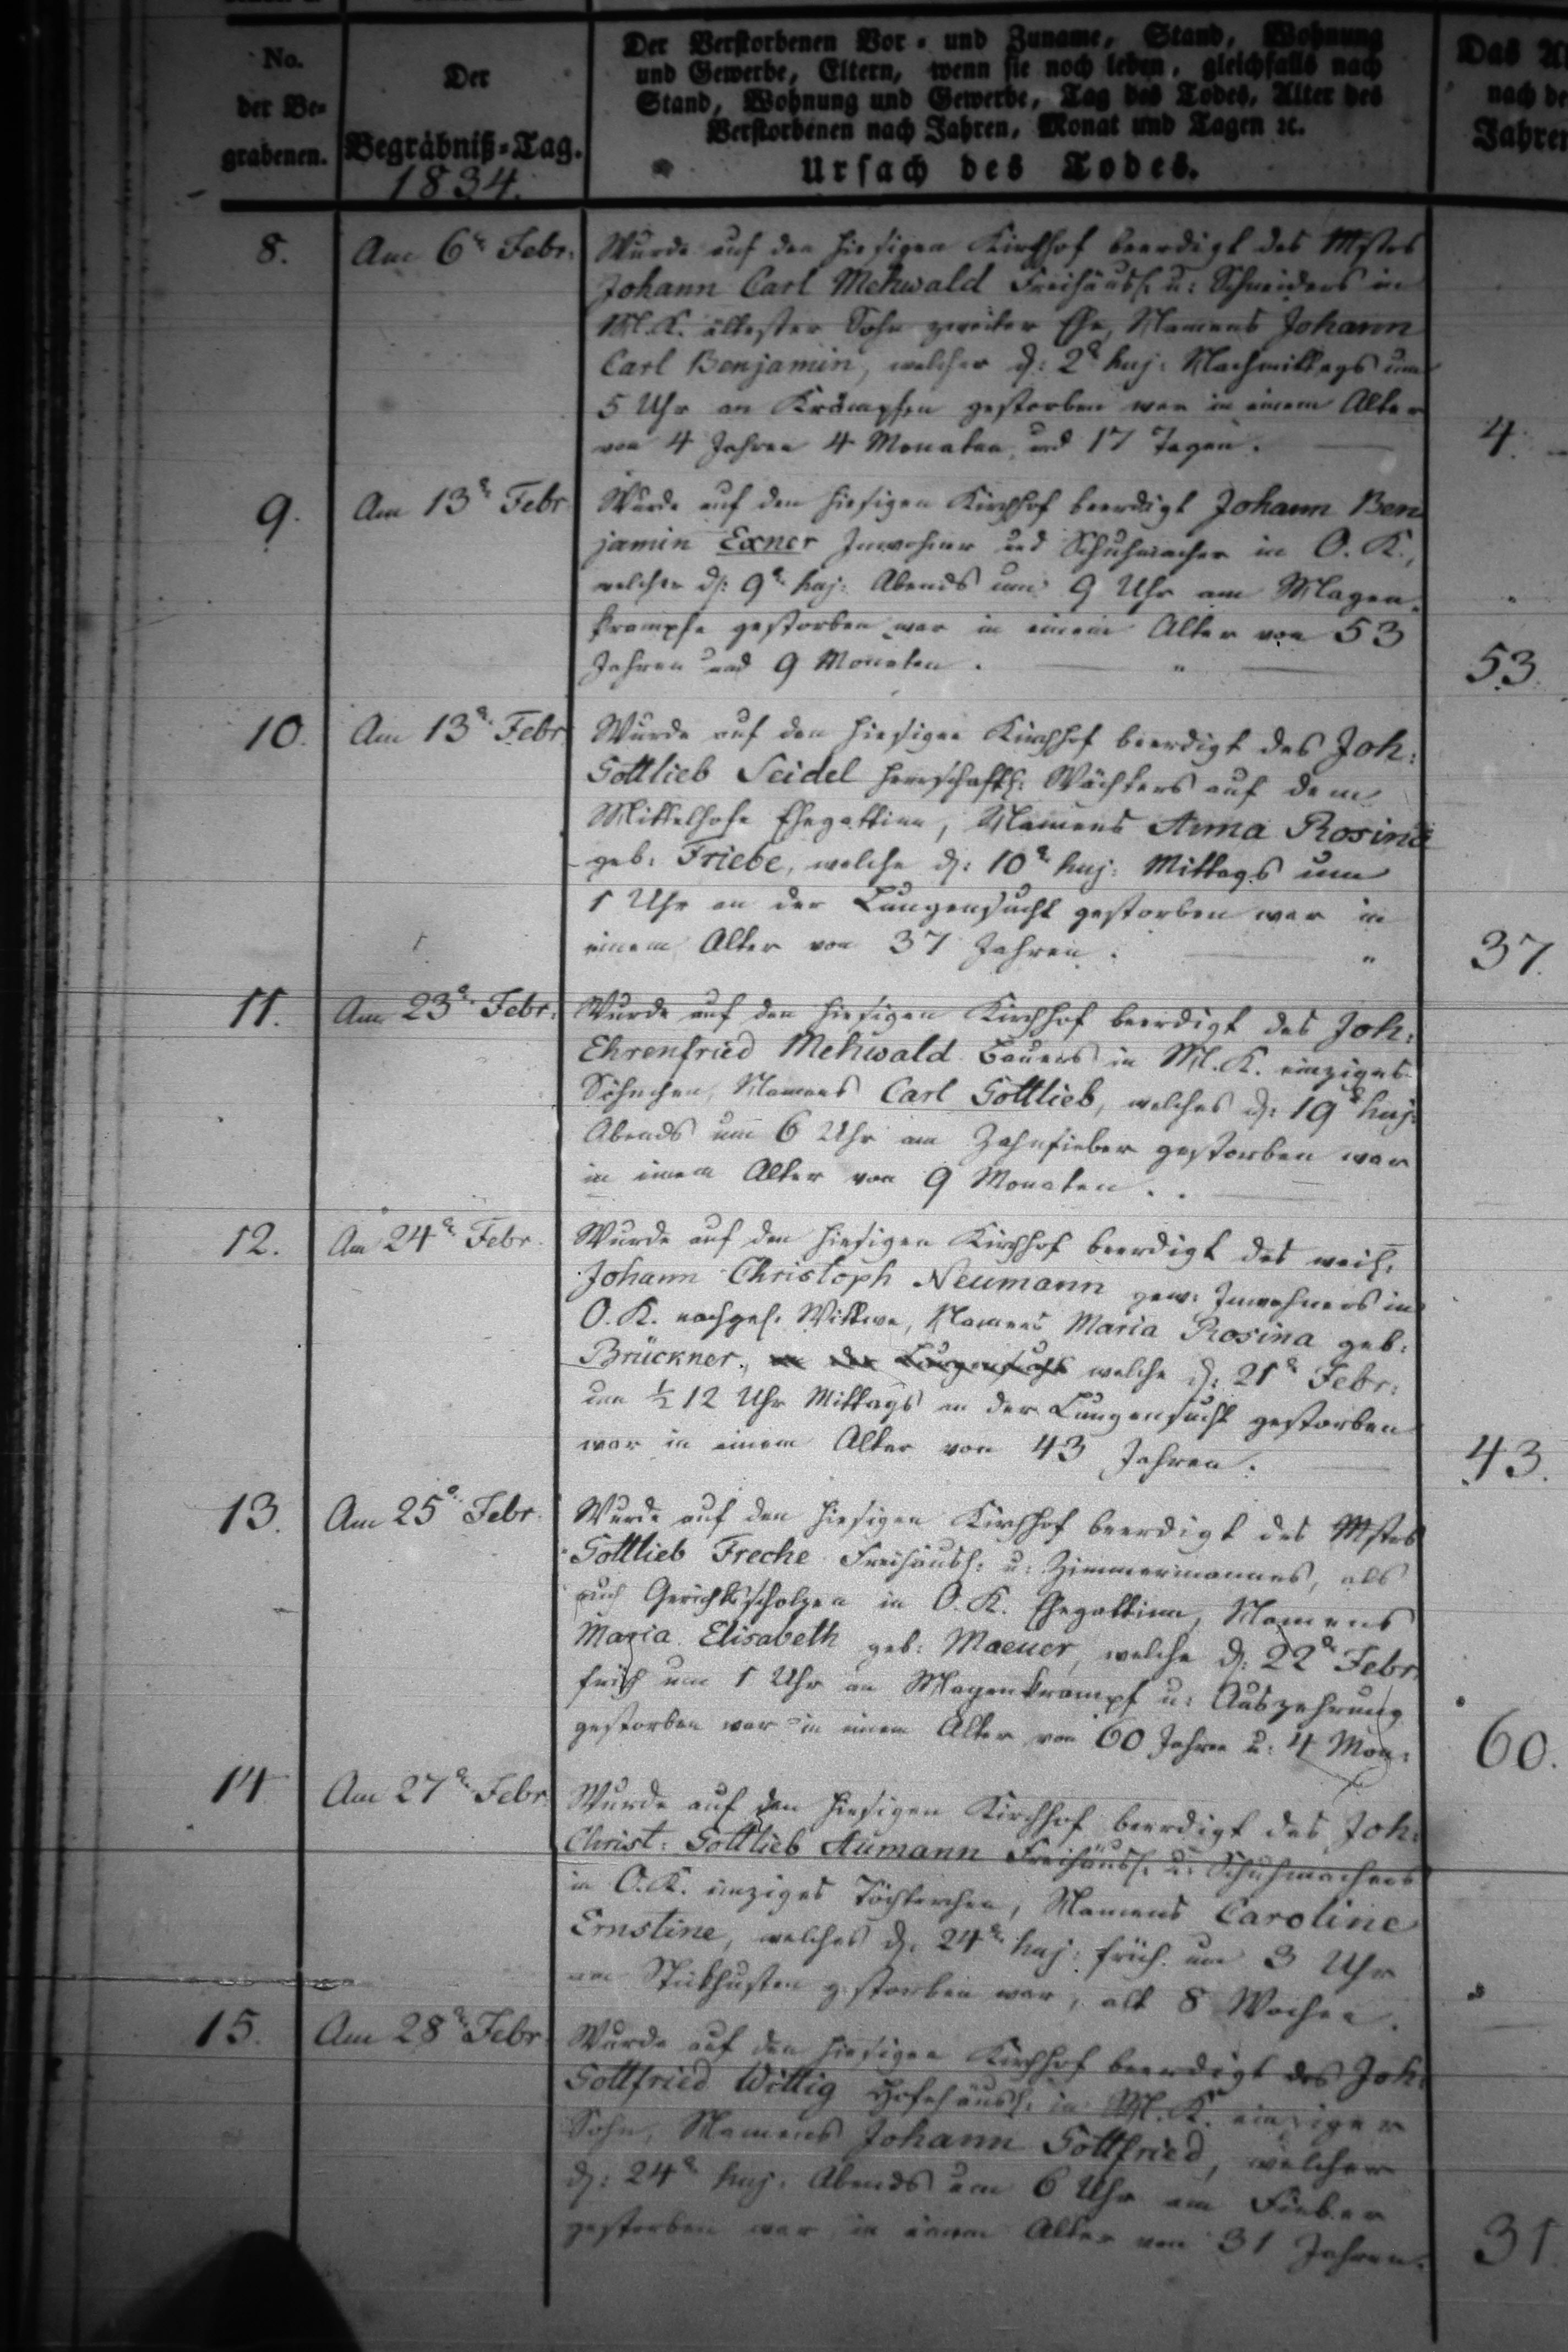 No.
der Be-
grabenen.
Der
Begräbniß-Tag.
1834.
Der Verstorbenen Vor- und Zuname, Stand, Wohnung
und Gewerbe, Eltern, wenn sie noch leben, gleichfalls nach
Stand, Wohnung und Gewerbe, Tag des Todes, Alter des
Verstorbenen nach Jahren, Monat und Tagen ꝛc.
Ursach des Todes.
Das
nach
Jahren
8.
Am 6t Febr:
Wurde auf den hiesigen Kirchhof beerdigt des Mstrs
Johann Carl Mehwald Freihäusl: u: Schneiders in
M. K. ältester Sohn zweiter Ehe, Namens Johann
Carl Benjamin, welcher d: 2t huj: Nachmittags um
5 Uhr an Krämpfen gestorben war in einem Alter
von 4 Jahren 4 Monaten und 17 Tagen.
4.
9.
Am 13t Febr
Wurde auf den hiesigen Kirchhof beerdigt Johann Ben
jamin Exner Inwohner und Schuhmacher in O. K.,
welcher d: 9t huj: Abends um 9 Uhr am Magen-
krampfe gestorben war in einem Alter von 53
Jahren und 9 Monaten.
53.
10.
Am 13t Febr
Wurde auf den hiesigen Kirchhof beerdigt des Joh:
Gottlieb Seidel herrschaftl: Wächters auf dem
Mittelhofe Ehegattinn, Namens Anna Rosina
geb: Friebe, welche d: 10t huj: Mittags um
1 Uhr an der Lungensucht gestorben war in
einem Alter von 37 Jahren.
37.
11.
Am 23t Febr:
Wurde auf den hiesigen Kirchhof beerdigt des Joh:
Ehrenfried Mehwald Bauers in M. K. einziges
Söhnchen, Namens Carl Gottlieb, welches d: 19t huj:
Abends um 6 Uhr am Zahnfieber gestorben war
in einem Alter von 9 Monaten.
12.
Am 24t Febr.
Wurde auf den hiesigen Kirchhof beerdigt des weil:
Johann Christoph Neumann gew: Inwohners in
O. K. nachgel: Wittwe, Namens Maria Rosina geb:
Brückner, an der Lungensucht welche d: 21t Febr:
um ½ 12 Uhr Mittags an der Lungensucht gestorben
war in einem Alter von 43 Jahren.
43.
13.
Am 25t Febr.
Wurde auf den hiesigen Kirchhof beerdigt des Mstrs
Gottlieb Freche Freihäusl: u: Zimmermannes, als
auch Gerichtsscholzen in O. K. Ehegattinn, Namens
Maria Elisabeth geb: Maeuer, welche d: 22t Febr.
früh um 1 Uhr an Magenkrampf u: Auszehrung
gestorben war in einem Alter von 60 Jahren u: 4 Mon:
60.
14
Am 27t Febr.
Wurde auf den hiesigen Kirchhof beerdigt des Joh:
Christ: Gottlieb Aumann Freihäusl: u: Schuhmachers
in O. K. einziges Töchterchen, Namens Caroline
Ernstine, welches d: 24t huj: früh um 3 Uhr
am Stickhusten gestorben war, alt 8 Wochen.
15.
Am 28t Febr.
Wurde auf den hiesigen Kirchhof beerdigt des Joh:
Gottfried Wittig Hofehäusl: in M. K. einziger
Sohn, Namens Johann Gottfried, welcher
d: 24t huj: Abends um 6 Uhr am Fieber
gestorben war in einem Alter von 31 Jahren.
31